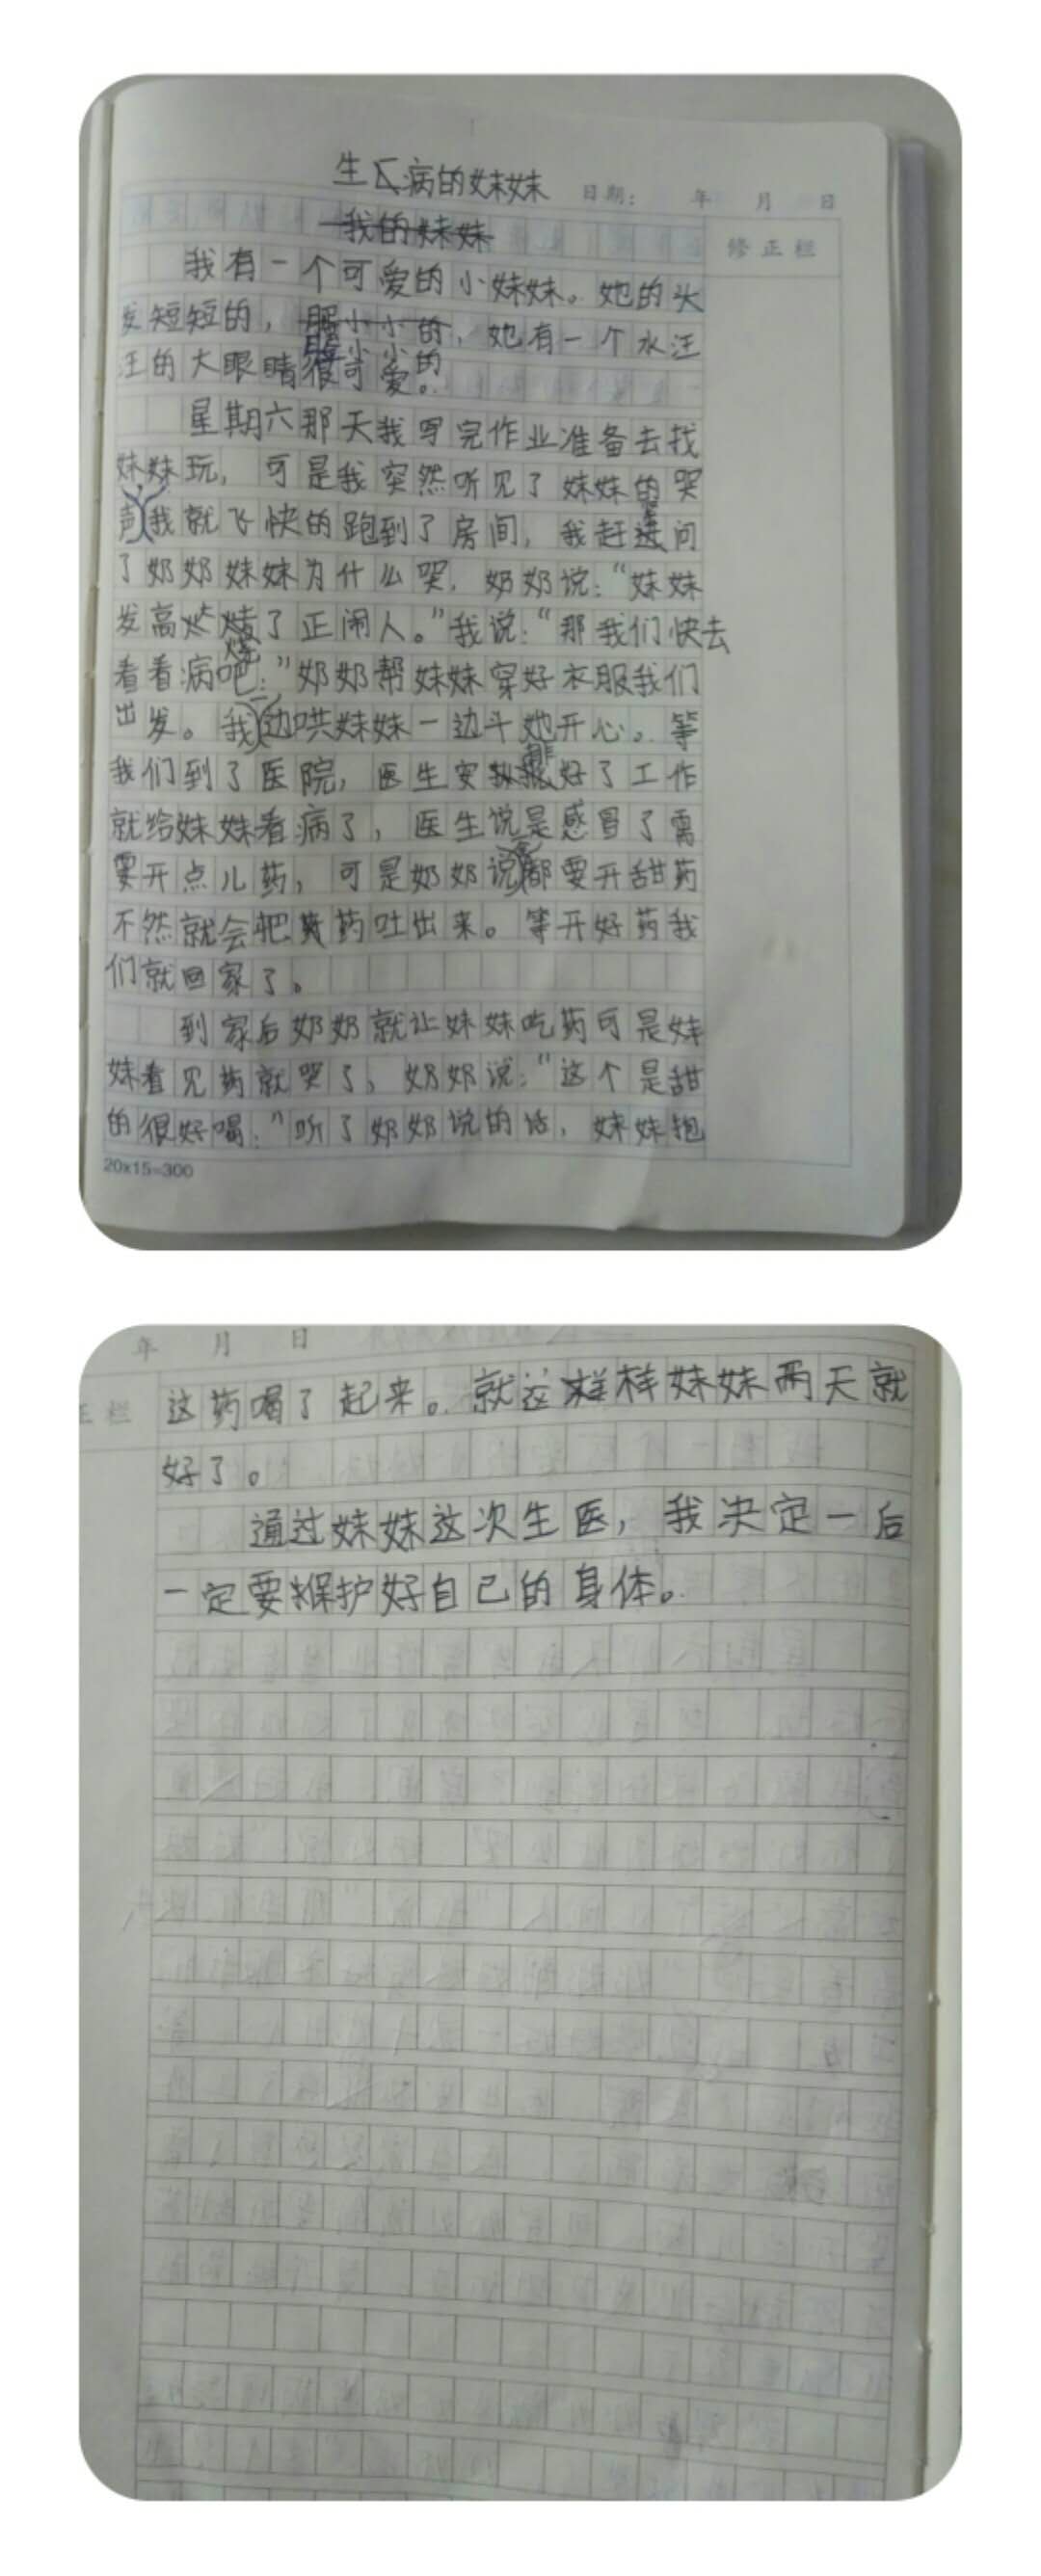 生病的妹妹
日期： 年 月 日
我的妹妹
修正栏
我有一个可爱的小妹妹。她的头
发短短的，腿小小的，她有一个水汪
腿小小的
汪的大眼睛很可爱。
星期六那天我写完作业准备去找
妹妹玩，可是我突然听见了妹妹的哭
声我就飞快的跑到了房间，我赶进问
了奶奶妹妹为什么哭，奶奶说：“妹妹
发高烧了正闹人。”我说：“那我们快去
烧
看看病吧：”奶奶帮妹妹穿好衣服我们
出发。我一边哄妹妹一边斗她开心。等
排
我们到了医院，医生安好了工作
就给妹妹看病了，医生说是感冒了需
要开点儿药，可是奶奶说都要开甜药
不然就会把药吐出来。等开好药我
们就回家了。
到家后奶奶就让妹妹吃药可是妹
妹看见药就哭了，奶奶说：“这个是甜
的很好喝：”听了奶奶说的话，妹妹抱
20x15=300
年 月 日
正栏
这药喝了起来。就这样妹妹两天就
好了。
通过妹妹这次生医，我决定一后
一定要保护好自己的身体。